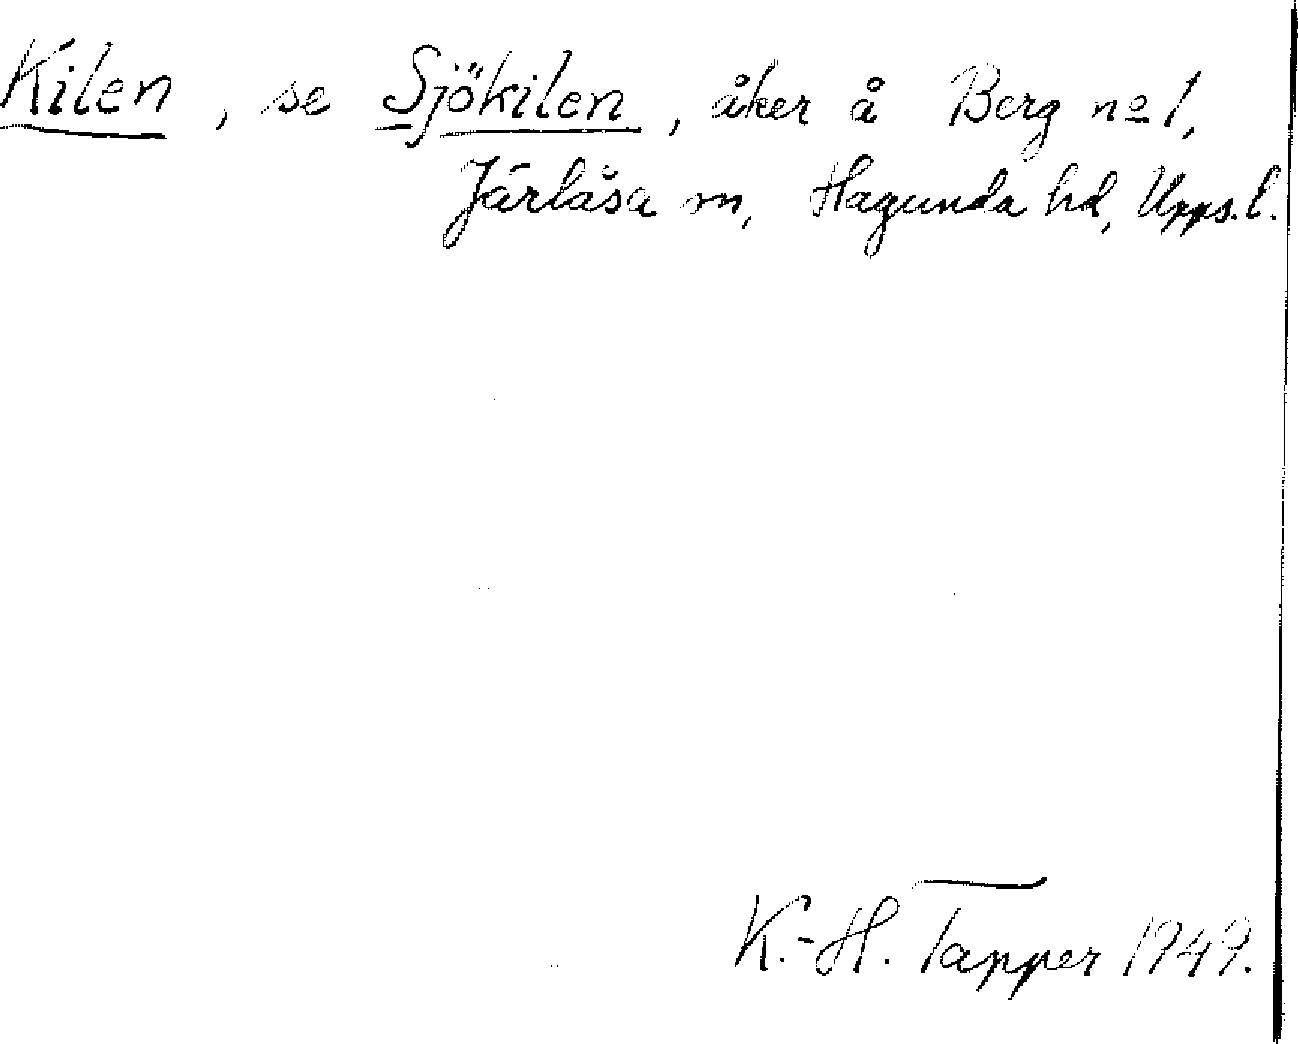 Kilen, se Sjökilen, åker å Berg nº 1,
Järlåsa sn, Hagunda hd, Upps.l.
K.-H. Tapper 1949.